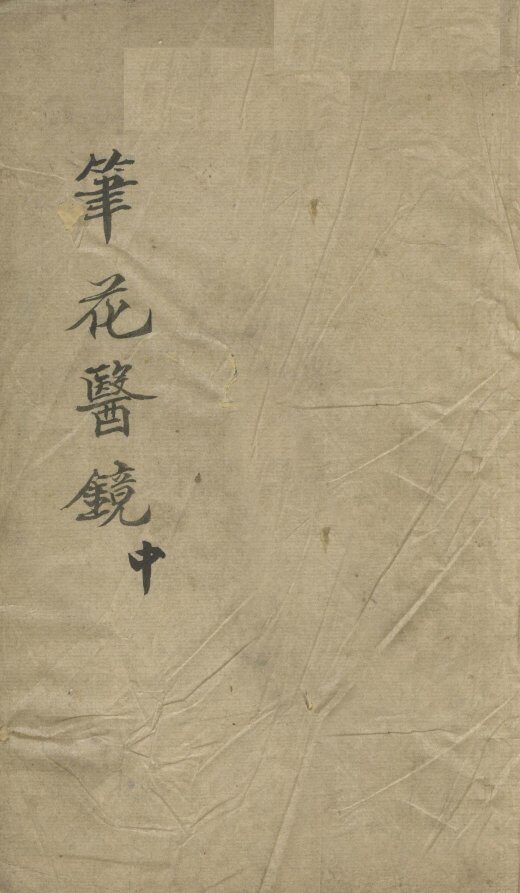 筆花醫鏡
中